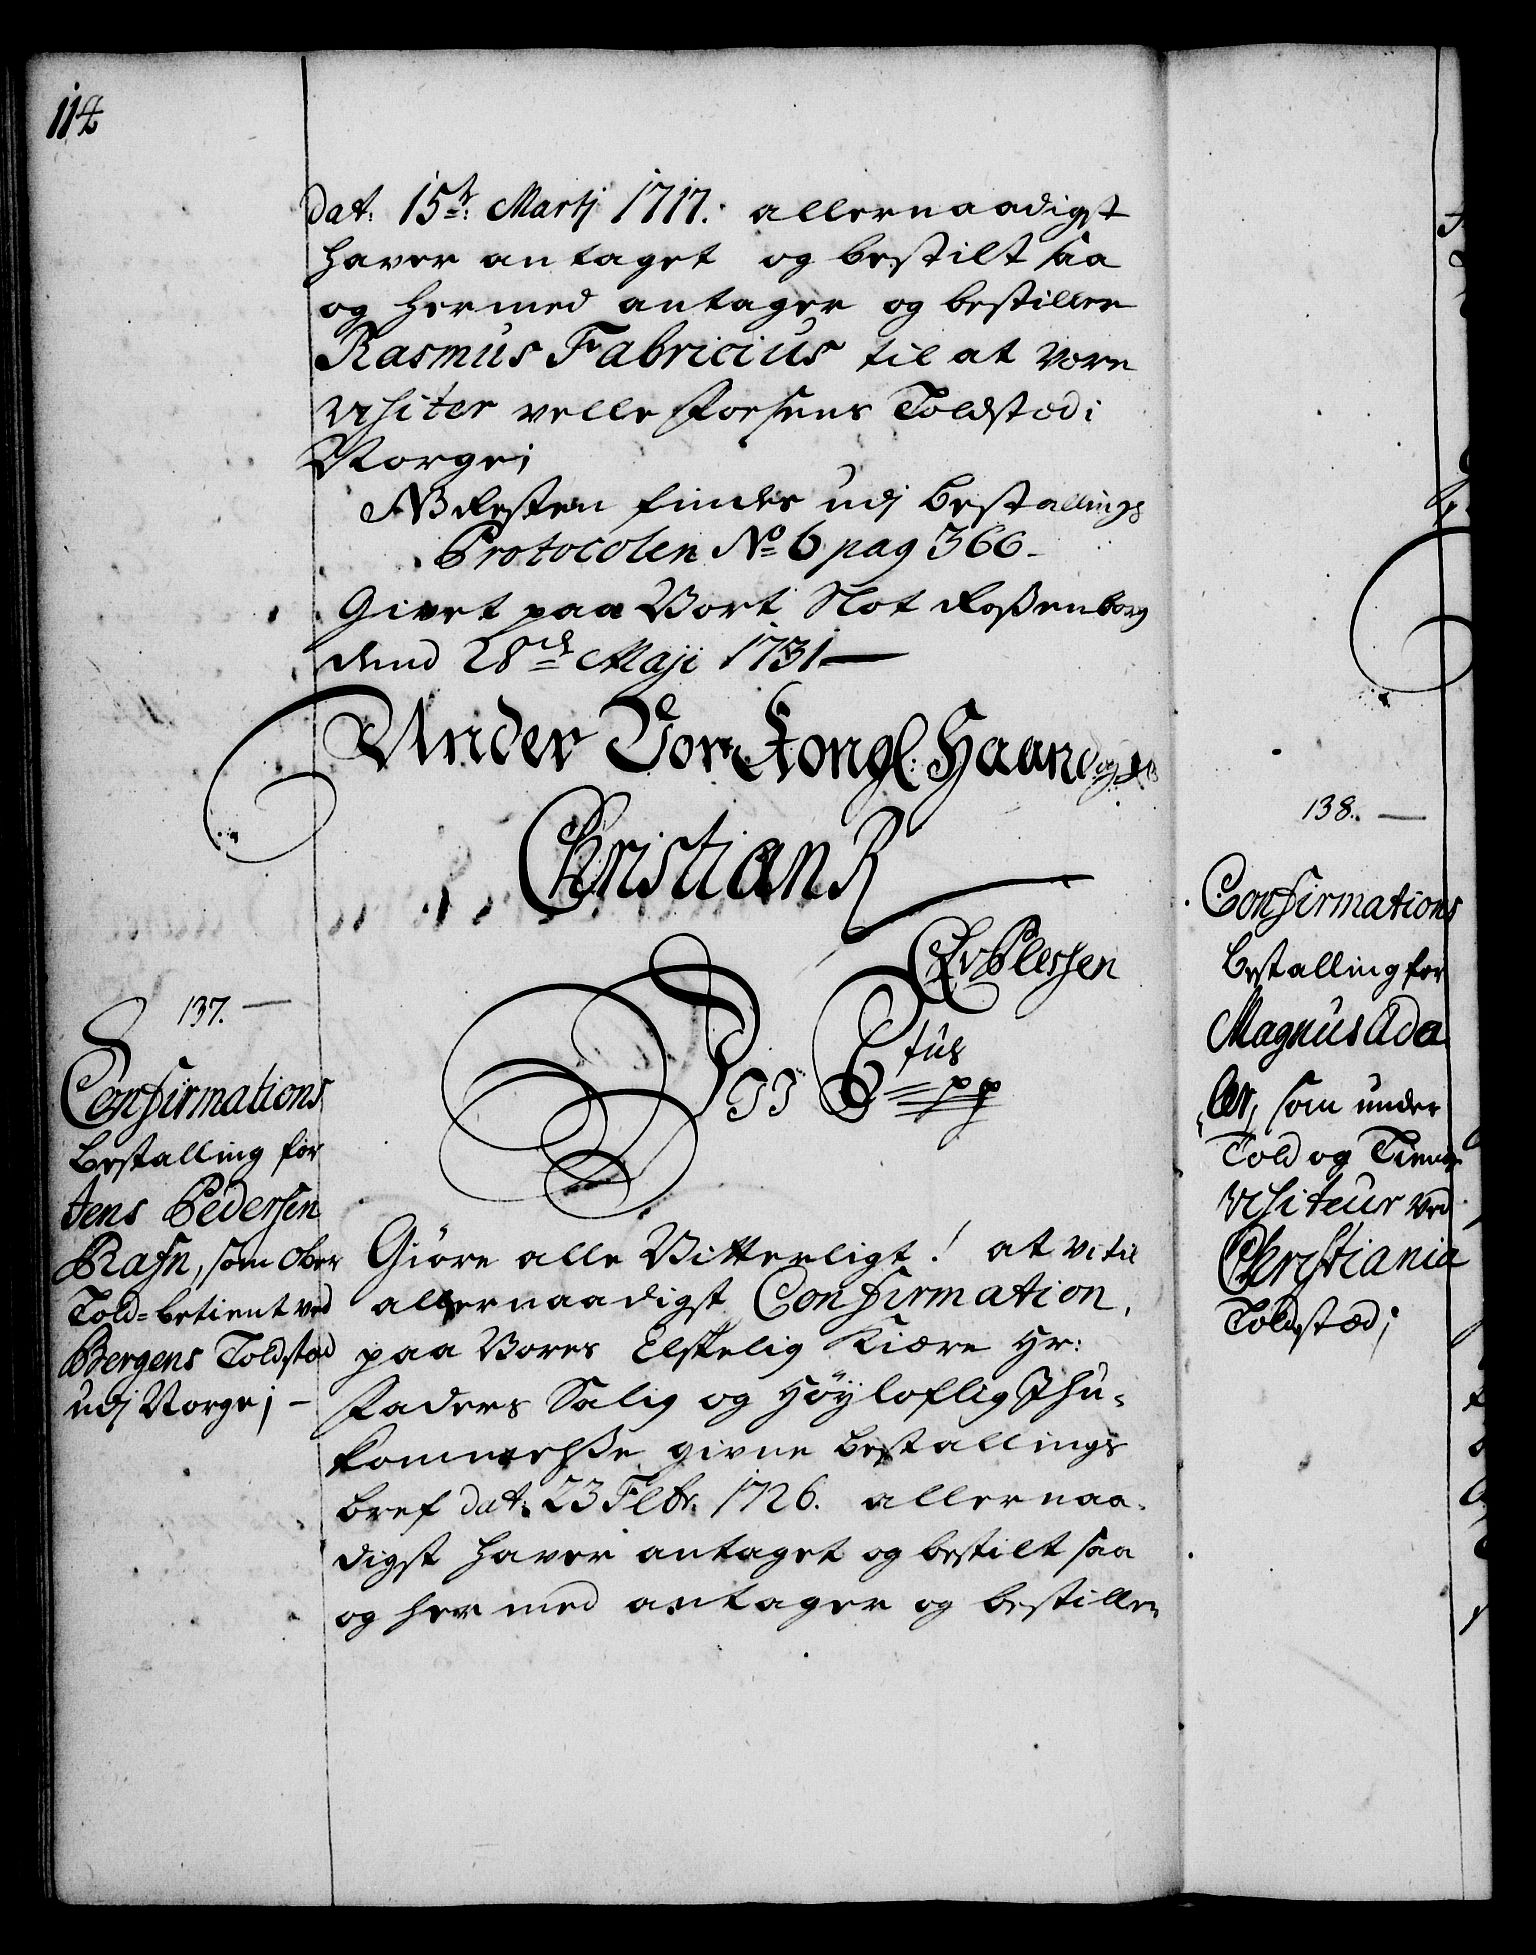 114
dat: 15de: Martj 1717. allernaadigst
haver antaget og bestilt saa
og hermed antager og bestiller
Rasmus Fabricius til at være
visiter velle Forsens Toldstæd i
Norge;
NB Resten findes udj Bestallings
Protocolen No 6 pag 366.
Givet paa Vort Slot Roßenborg
dend 28de Maji 1731
Under Vor Kongl: Haand og
Christian R
CAvPlessen
137.
Confirmations
Bestalling for
Jens Pedersen
Rafn, som Ober
Told-betient ved
Bergens Toldstæd
udj Norge;
Vi C 6tus pp
Giöre alle Vitterligt! at vi til
allernaadigst Confirmation,
paa Vores Elskelig Kiære Hr:
Faders Salig og Höyloflig Ihu-
kommelse givne Bestallings
bref dat: 23 Febr. 1726. allernaa-
digst haver antaget og bestilt saa
og her med antager og bestiller
138.
Confirmations
Bestalling for
Magnus Ada
ler, som under
Told og Tiende
visiteur ved
Christiania
Toldstæd;